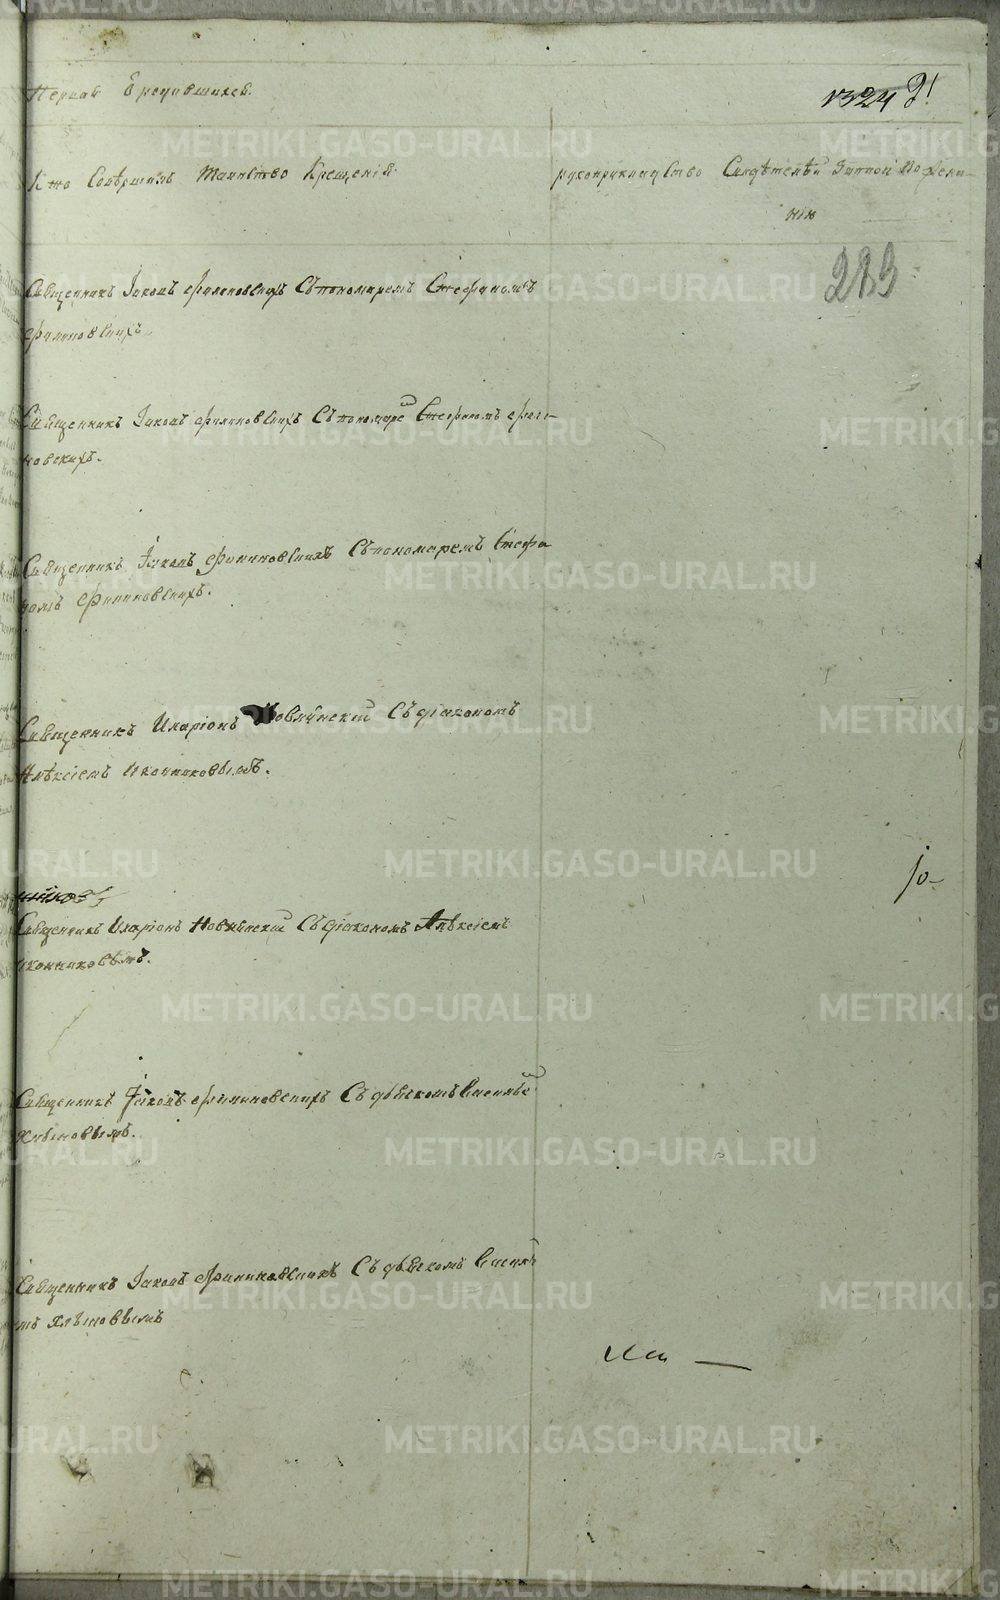 Первая О родившихся.
1324 2!
Кто Совершилъ таинство Крещенія.
рукоприкладство Свидѣтелей записи По жела-
нію
283
Священникъ Іаковъ Филиповскихъ Съ пономаремъ Стефаномъ
Филиповскихъ.
Священникъ Іаковъ Филиповскихъ Съ пономаремъ Стефаномъ Фили-
повскихъ.
Священникъ Іаковъ Филиповскихъ Съ пономаремъ Стефа
номъ Филиповскихъ.
Священникъ Иларіонъ Съ діакономъ
Алѣксіемъ Иконниковымъ.
Священникъ Иларіонъ Съ діакономъ Алѣксіемъ
Иконниковымъ.
Священникъ Іаковъ Филиповскихъ Съ дьячкомъ Василье
Хлыновымъ.
Священникъ Іаковъ Филиповскихъ Съ дьячкомъ Василье
мъ Хлыновымъ
METRIKI.GASO-URAL.RU